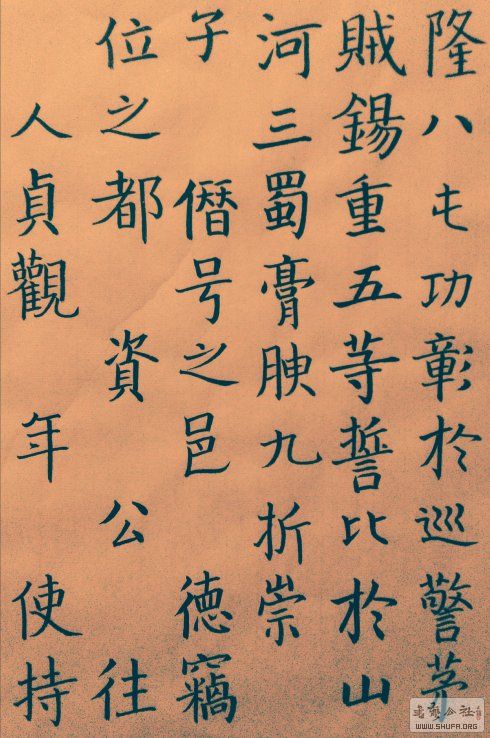 隆八屯功彰於巡警茅
賊錫重五等誓比於山
河三蜀膏腴九折崇
子 僭号之邑 德竊
位之都 資 公 往
人貞觀 年 使持
WWW.SHUFA.ORG